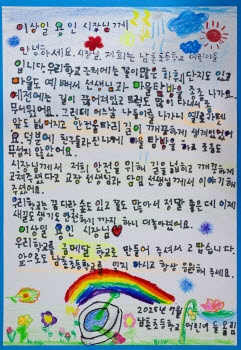 이상일 용인 시장님께
안녕하세요. 시장님, 저희는 남촌초등학교 어린이들
입니다. 우리학교 근처에는 꽃이 많은 화훼단지도 있고
마을도 예뻐서 선생님과 마을탐방을 종종 나가요.
이전에는 길이 좁아졌었고 트럭도 많이 다녀서 좀
무서웠어요. 그런데 어느날 나들이를 나가니 예로하이
앞도 넓어지고 안전울타리 길이 깨끗하게 생겨있었어
요. 덕분에 친구들과 신나게 마을 탐방을 하고 차들도
무섭지 않았어요.
시장님께서 저희 안전을 위해 길을 넓히고 깨끗하게
고쳐주셨다고 교장 선생님과 담임 선생님께서 이야기해
주셨어요.
우리학교는 꿈 다락 숲도 있고 꽃도 많아서 정말 좋은데 이제
새길도 생기고 완전하기까지 하니 더 좋아졌어요.
이상일 용인 시장님
우리학교를 금메달 학교로 만들어 주셔서 고맙습니다.
앞으로도 남촌초등학교를 잊지 마시고 항상 응원해 주세요.
2025년 7월
남촌초등학교 어린이 들 올림